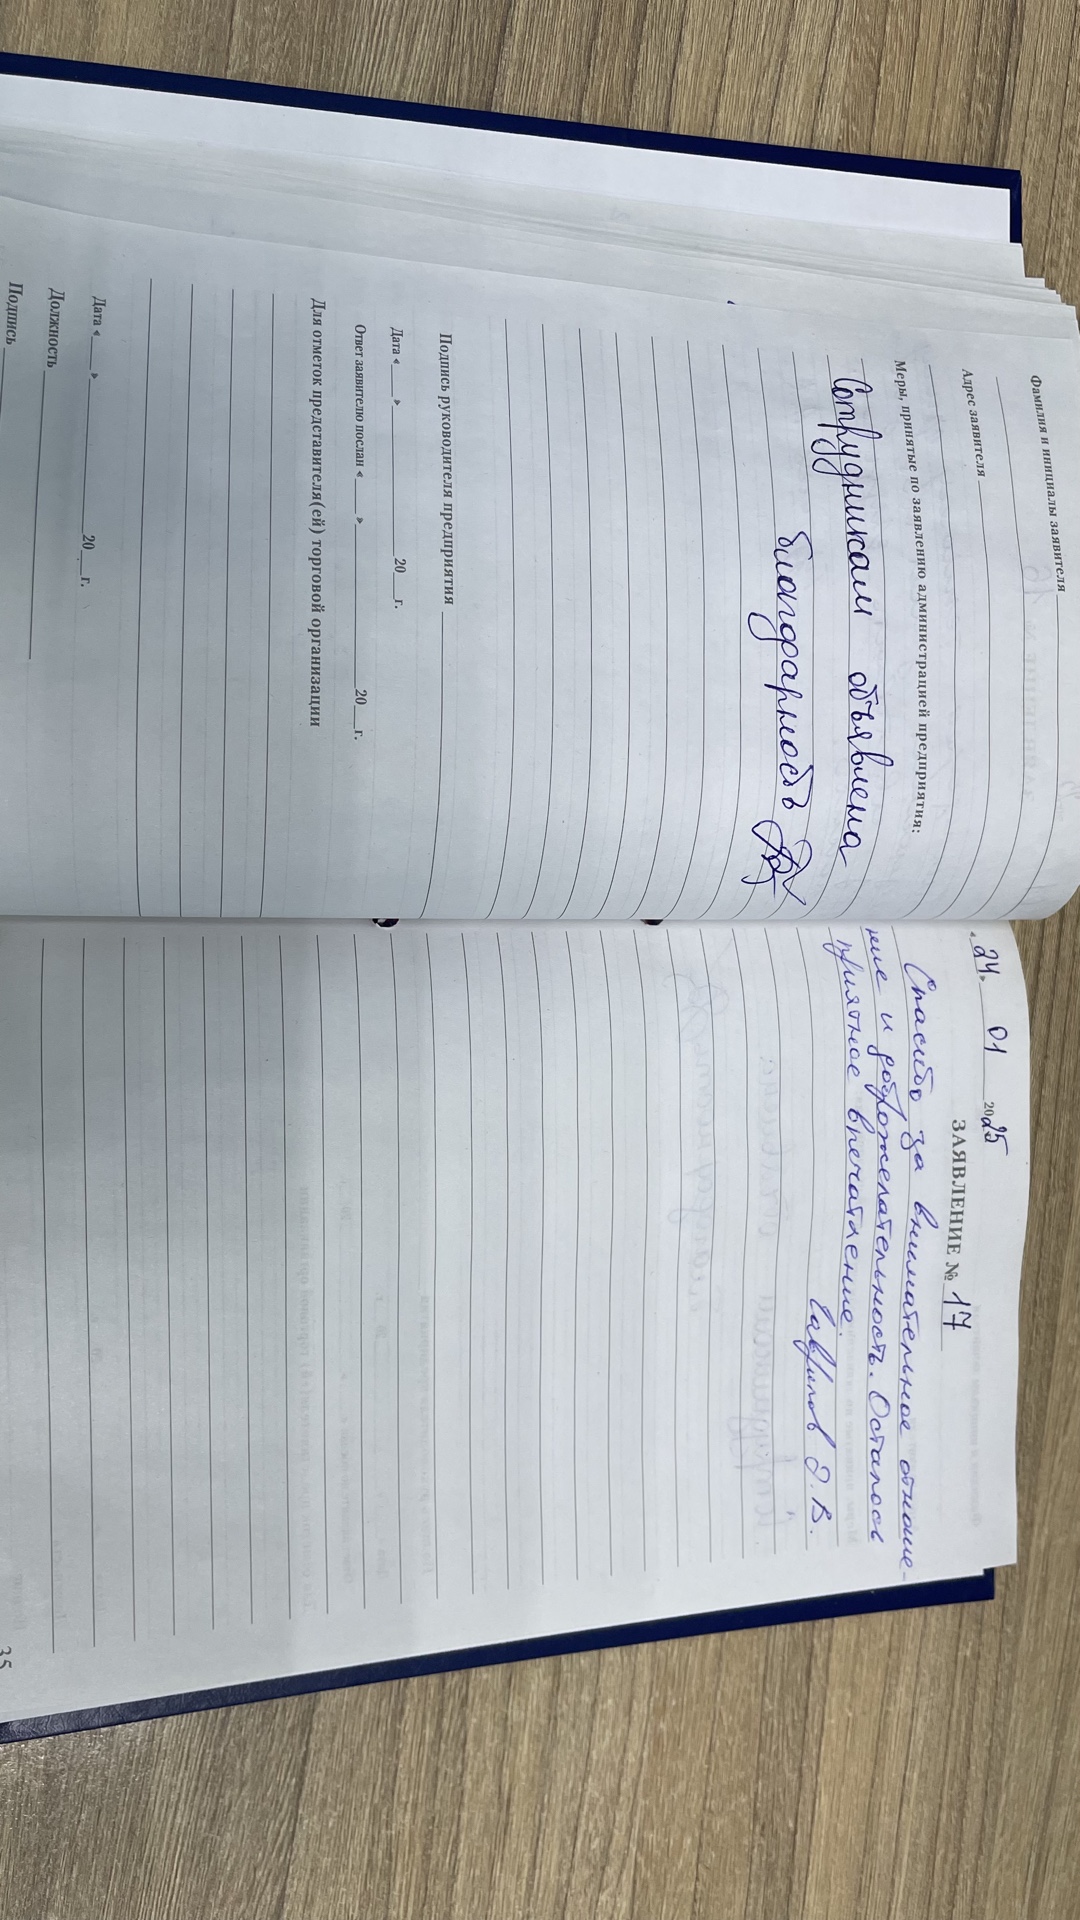 Фамилия и инициалы заявителя
Адрес заявителя
Меры, принятые по заявлению администрацией предприятия:
Сотрудникам объявлена
благодарность
Подпись руководителя предприятия
Дата « » 20 г.
Ответ заявителю послан « » 20 г.
Для отметок представителя(ей) торговой организации
Дата « » 20 г.
Должность
Подпись
«24» 01 2025
ЗАЯВЛЕНИЕ № 17
Спасибо за внимательное отноше-
ние и доброжелательность. Осталось
приятное впечатление.
Гаврилов Э.В.
35